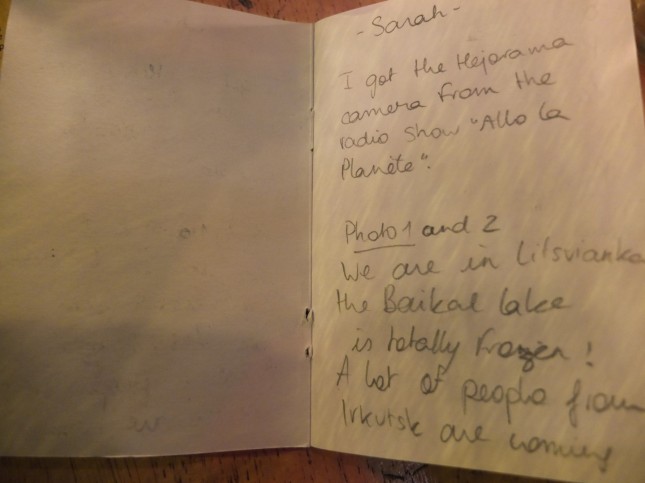 - Sarah -
I got the Hejorama
camera from the
radio show "Allo la
Planète".
Photo 1 and 2
We are in Litsvianka
the Baikal lake
is totally frozen !
A lot of people from
Irkutsk are coming